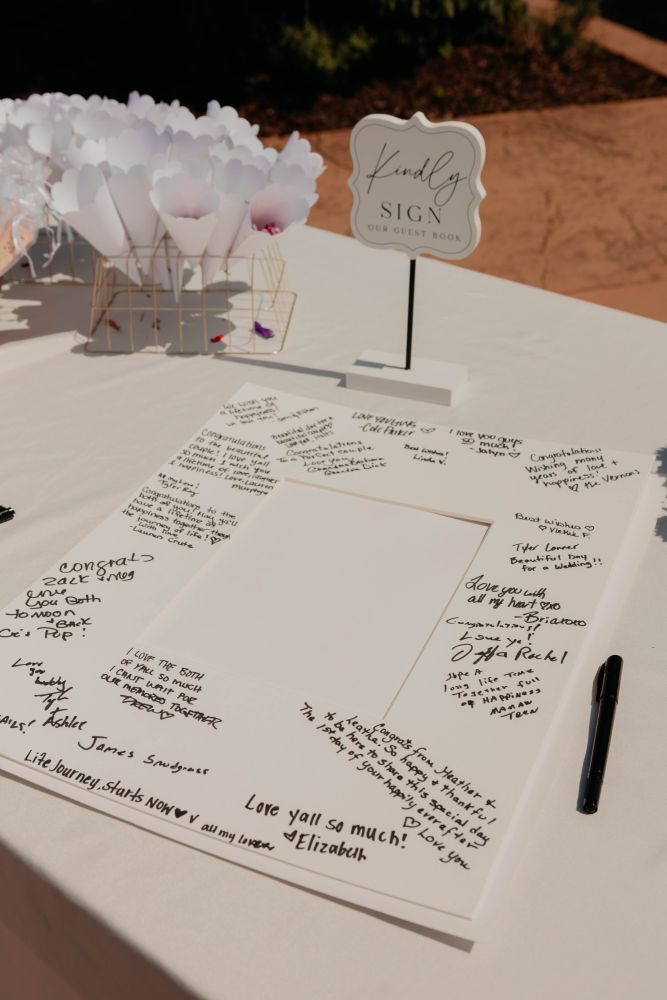 Kindly
SIGN
OUR GUEST BOOK
We wish you
a lifetime of
happiness!
Congratulations
to the beautiful
couple! I love y'all
so much! I wish you
a lifetime of love, laughter
& happiness! Love, Lauren
Beautiful day for a
beautiful couple!
Congratulations
To a Perfect couple
Love you
LOVE YOU GUYS
-Cole Parker ♡
I love you guys
so much!
-Jalyn ♡
Best Wishes!
Linda V.
Congratulations!
Wishing many
years of love +
happiness!
♡ the Vernons
Congratulations to the
both of you! May you'll
have a lifetime of
happiness together through
the journey of life! ♡
With love
-Lauren Crute
Best wishes ♡
♡ Vickie F.
Tyler Lanner
Beautiful Day
for a Wedding!!
Love you with
all my heart ♡xo
Congratulations!
Love ya!
Rachel
Hope A
long life Time
Together full
of HAPPINESS
MAMAW
TEEN
congrats
Zack
Love
You Both
to MOON
+ BACK
Pop!
Love
you
Tyler
& Ashlee
I LOVE THE BOTH
OF YALL SO MUCH
I CAN'T WAIT FOR
OUR MEMORIES TOGETHER
James Snodgrass
Life Journey, Starts NOW ♥
all my love
Congrats from Heather &
Keatha. So happy & thankful
to be here to share this special day
The 1st day of your happily everafter
♡ Love you
Love yall so much!
♡ Elizabeth